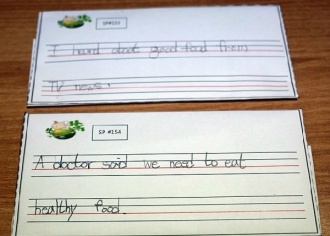 SP #153
I heard about good food from
TV news.
SP #154
A doctor said we need to eat
healthy food.